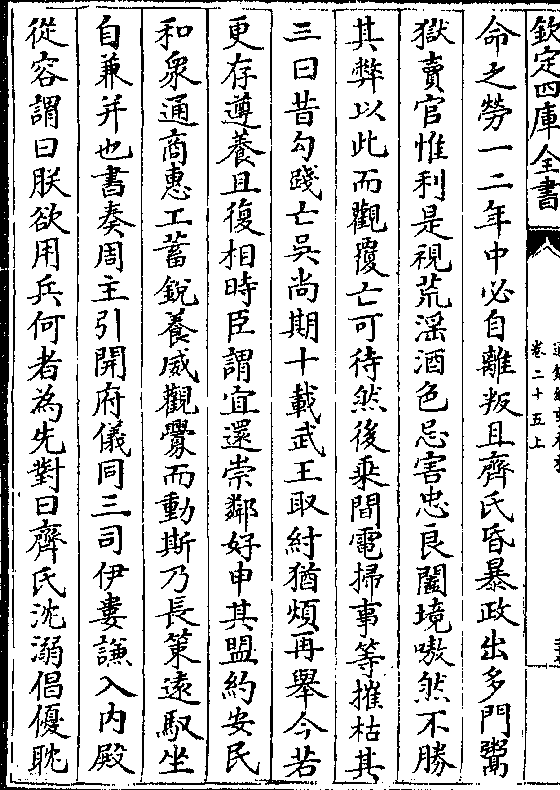 欽定四庫全書
卷二十五上
命之勞一二年中必自離叛且齊氏昏暴政出多門鬻
獄賣官惟利是視荒淫酒色忌害忠良闔境嗷然不勝
其弊以此而觀覆亡可待然後乘間電掃事等摧枯其
三曰昔勾踐亡吳尚期十載武王取紂猶煩再舉今若
更存遵養且復相時臣謂宜還崇鄰好申其盟約安民
和衆通商惠工蓄銳養威觀釁而動斯乃長策遠馭坐
自兼并也書奏周主引開府儀同三司伊婁謙入內殿
從容謂曰朕欲用兵何者為先對曰齊氏沈溺倡優耽